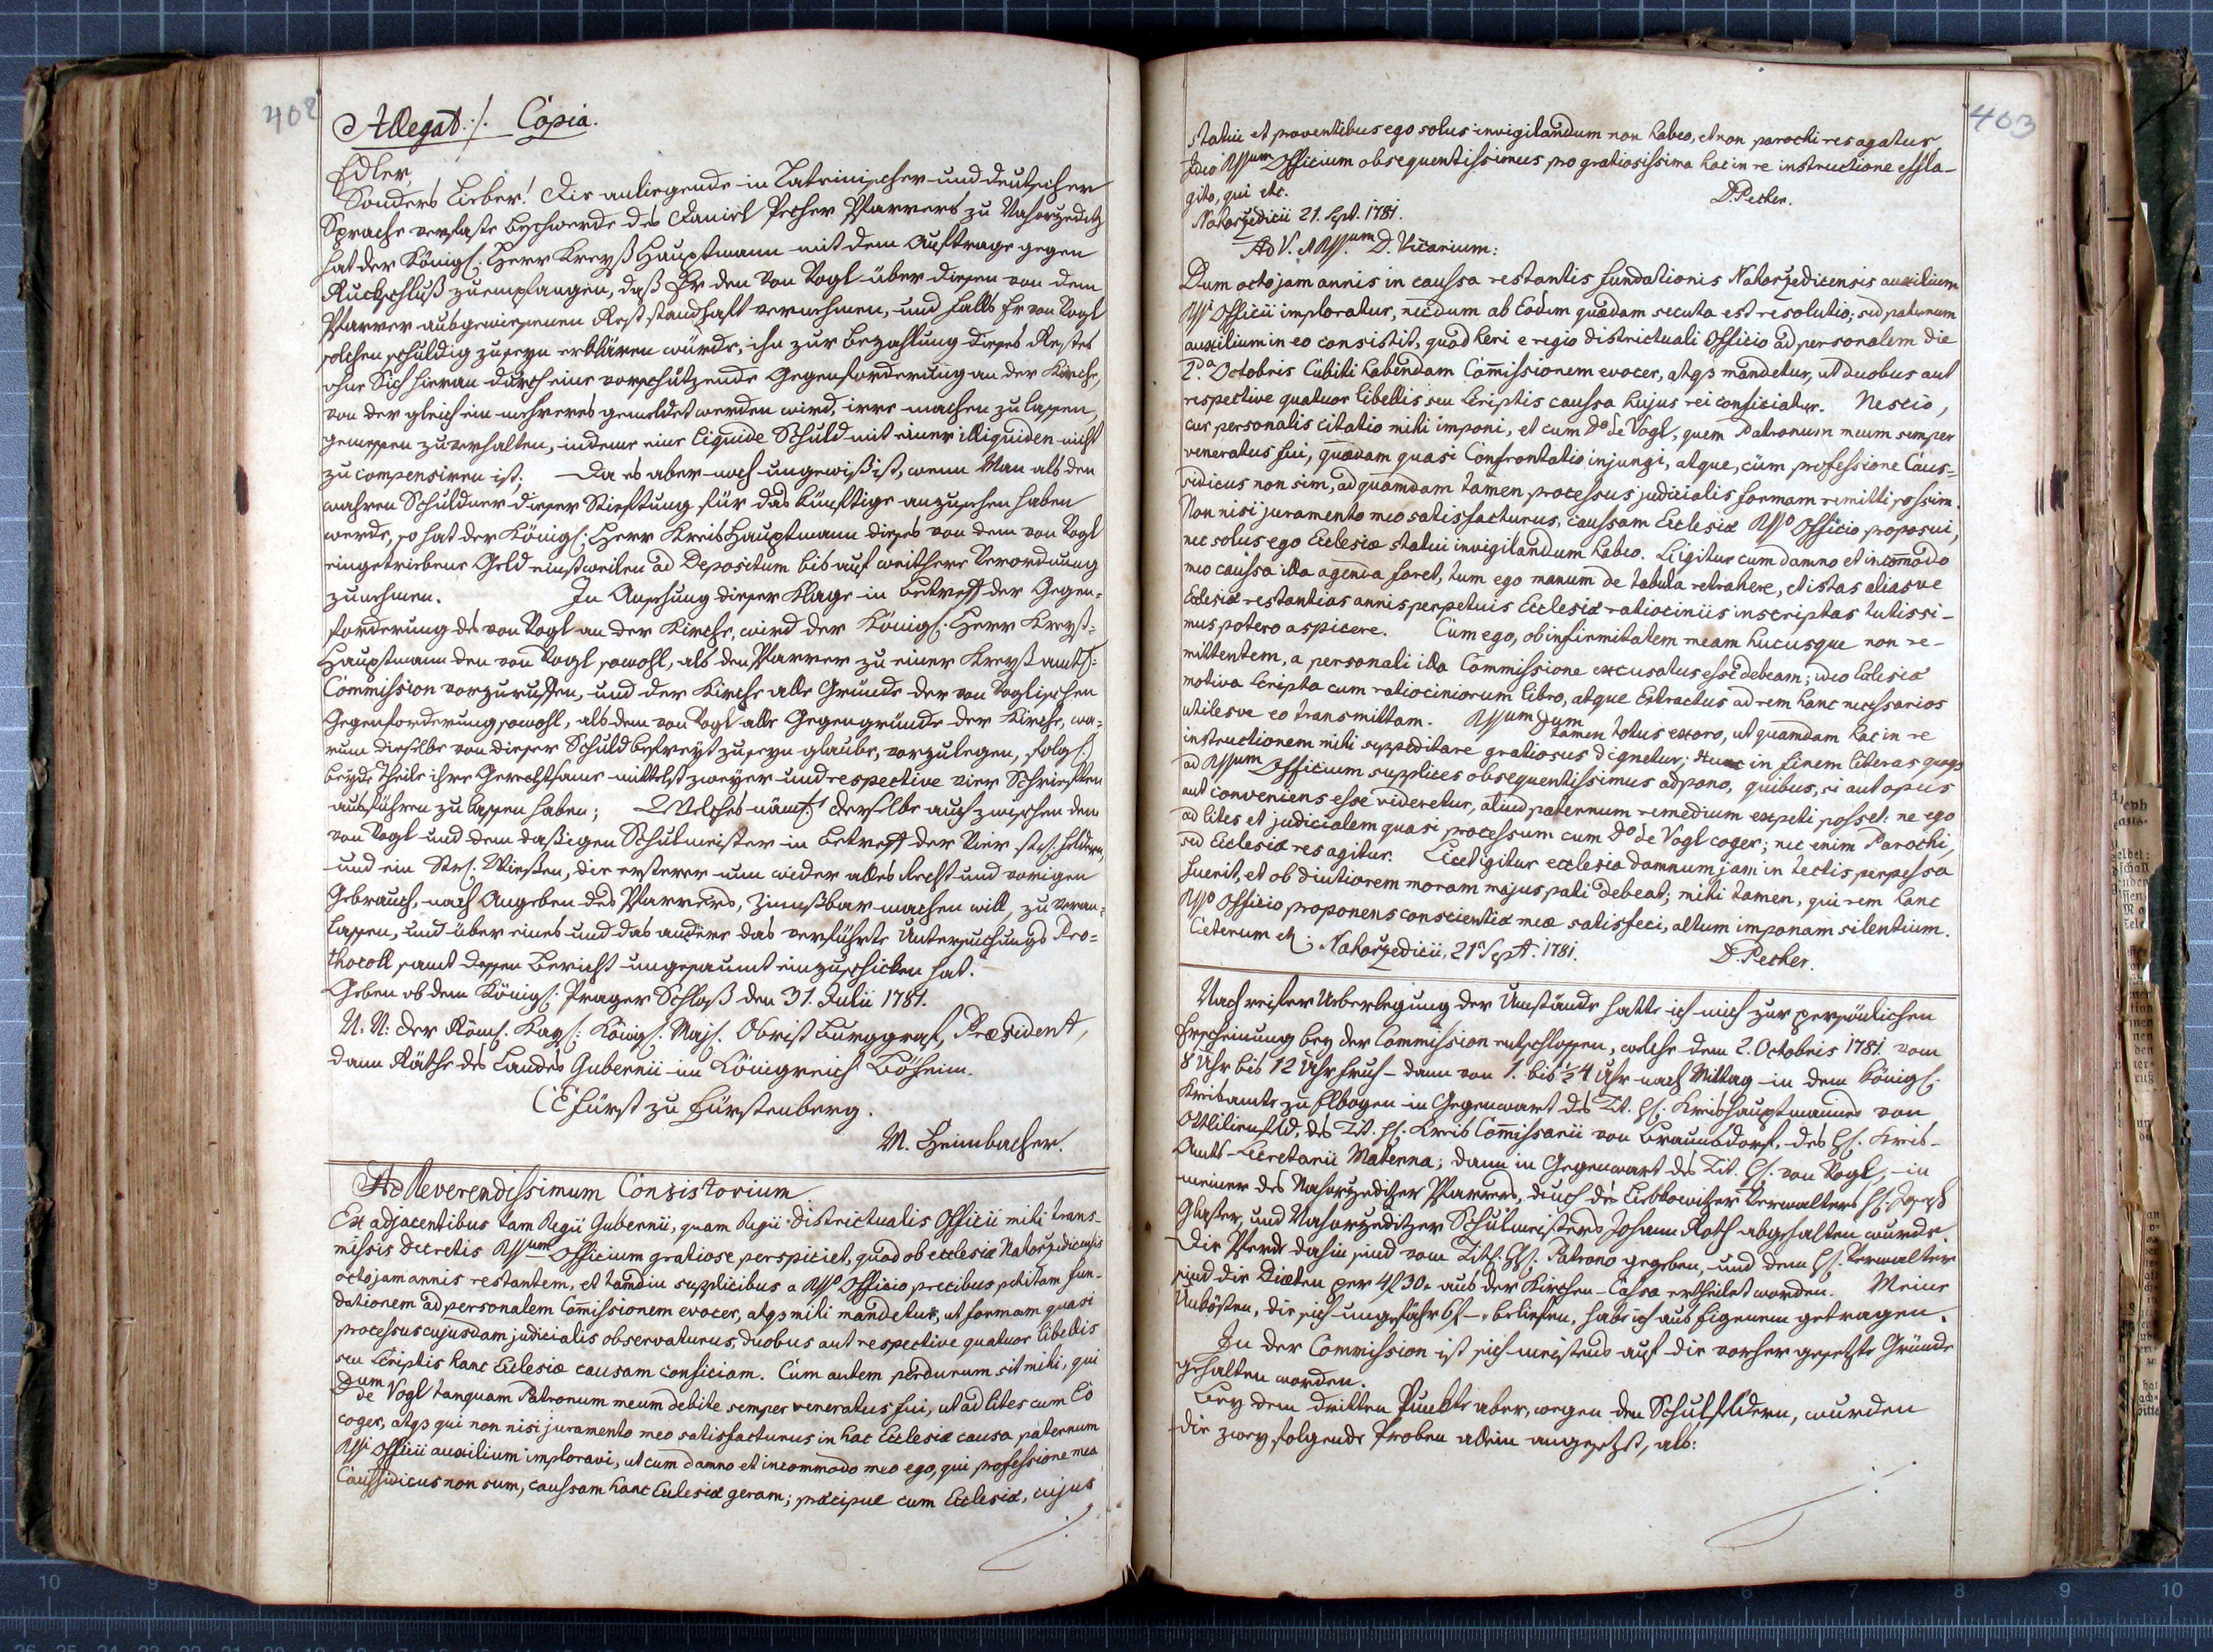 402
Allegat ·/. Copia.
Edler,
Sonders Lieber! Die anliegende in Lateinischer und deutscher
Sprache verfaste Beschwerde des Daniel Pecher Pfarrers zu Nahorzeditz
hat der Königl: Herr Kreyß Hauptmann mit dem Auftrage gegen
Ruckschluß zuempfangen, daß Er den von Vogl über diesen von dem
Pfarrer ausgewiesenen Rest standhaft vernehmen, und falls Er von Vogl
solchen schuldig zuseyn erklären würde, ihn zur Bezahlung dieses Restes
ohne Sich hieran durch eine vorschützende Gegenforderung an der Kirche,
von der gleich ein mehreres gemeldet werden wird, irre machen zu lassen,
gemessen zuverhalten, indeme eine liquide Schuld mit einer illiquiden nicht
zu compensiren ist; Da es aber noch ungewiß ist, wenn Man als den
wahren Schuldner dieser Stieftung für das künftige anzusehen haben
werde, so hat der Königl: Herr Kreis Hauptmann dieses von dem von Vogl
eingetriebene Geld einstweilen ad Depositum bis auf weithere Verordnung
zunehmen. In Ansehung dieser Klage in betreff der Gegen-
forderung des von Vogl an der Kirche, wird der Königl: Herr Kreyß-
Hauptmann den von Vogl sowohl, als den Pfarrer zu einer Kreyßamts:
Commission vorzuruffen, und der Kirche alle Gründe der von Voglischen
Gegenforderung sowohl, als dem von Vogl alle Gegengründe der Kirche, wa-
rum dieselbe von dieser Schuld befreyt zuseyn glaube, vorzulegen, folgl:
beyde Theile ihre Gerechtsame mittelst zweyer und respective vier Schrieften
ausführen zu lassen haben; Welches nämt: derselbe auch zwischen dem
von Vogl und dem dasigen Schulmeister in betreff der Vier Felder,
und ein Wiesen, die ersterer nun wieder alles Recht und vorigen
Gebrauch, nach Angeben des Pfarrers, Zinnßbar machen will, zu veran-
lassen, und über eines und das andere das verführte Untersuchungs Pro-
thocoll samt dessen Bericht ungesaumt einzuschicken hat.
Geben ob dem Königl: Prager Schloß den 31. Julii 1781.
N: N: der Röm: Kays: Königl: Maj: Obrist Burggraf, Præsident,
dann Räthe des Landes Gubernii im Königreich Böheim.
CE Fürst zu Fürstenberg.
M. Heimbacher.
Ad Reverendissimum Consistorium
Ex adjacentibus tam Regii Gubernii, quam Regii Districtualis Officii mihi trans-
missis Decretis Rssum Officium gratiose perspiciet, quod ob ecclesiæ Nahorzedicensis
octo jam annis restantem, et tamdiu supplicibus a Rsso Officio precibus petitam fun-
dationem ad personalem Com̄issionem evocer, atqs mihi mandetur, ut formam quasi
processus cujusdam judicialis observaturus, duobus aut respective quatuor libellis
seu Scriptis hanc Ecclesiæ causam conficiam. Cum autem perdurum sit mihi, qui
Dum de Vogl tanquam Patronum meum debite semper veneratus fui, ut ad lites cum Eo
coger, atqs qui non nisi juramento meo satisfacturus in hac Ecclesiæ causa, paternum
Rssi Officii auxilium imploravi, ut cum damno et incommodo meo ego, qui professione mea
Caussidicus non sum, caussam hanc Ecclesiæ geram; præcipue cum Ecclesiæ, cujus
·/.
403
statui et proventibus ego solus invigilandum non habeo, et non parochi res agatur,
Ideo Rssum Officium obsequentissimus pro gratiosissima hac in re instructione efflа-
gito, qui etc.
D. Pecher.
Nahorzedicii 21. Sept. 1781.
Ad V. A Rss.um D. Vicarium:
Dum octo jam annis in caussa restantis fundationis Nahorzedicensis auxilium
Rssi Officii imploratur, necdum ab Eodem quædam secuta est resolutio; sed paternum
auxilium in eo consistit, quod heri e regio districtuali Officio ad personalem die
2da Octobris Cubiti habendam Com̄issionem evocer, atqs mandetur, ut duobus aut
respective quatuor libellis seu Scriptis caussa hujus rei conficiatur. Nescio,
cur personalis citatio mihi imponi, et cum Do de Vogl, quem Patronum meum semper
veneratus fui, quædam quasi Confrontatio injungi, atque, cum professione Caus-
sidicus non sim, ad quamdam tamen processus judicialis formam remitti possim.
Non nisi juramento meo satisfacturus, caussam Ecclesiæ Rsso Officio proposui,
nec solus ego Ecclesiæ statui invigilandum habeo. Si igitur cum damno et incom̄odo
meo caussa illa agenda foret, tum ego manum de tabula retrahere, et istas aliasve
Ecclesiæ restantias annis perpetuis Ecclesiæ ratiociniis inscriptas tutissi-
mus potero aspicere. Cum ego, ob infirmitatem meam hucusque non re-
mittentem, a personali illa Commissione excusatus esse debeam; ideo Eclesiæ
motiva Scripta cum ratiociniorum libro, atque Extractus ad rem hanc necessarios
utilesve eo transmittam. Rssum Dum tamen totus exoro, ut quamdam hac in re
instructionem mihi suppeditare gratiosus dignetur; Hunc in finem literas quoqs
ad Rssum Officium supplices obsequentissimus adpono, quibus, si aut opus
aut conveniens esse videretur, aliud paternum remedium expeti posset: ne ego
ad lites et judicialem quasi processum cum Do de Vogl coger; nec enim Parochi,
sed Ecclesiæ res agitur. Licet igitur ecclesia damnum jam in tectis perpessa
fuerit, et ob diutiorem moram majus pati debeat; mihi tamen, qui rem hanc
Rsso Officio proponens conscientiæ meæ satisfeci, altum imponam silentium.
Ceterum etc; Nahorzedicii, 21a Sept. 1781. D. Pecher.
Nach reifer Ueberlegung der Umstände hatte ich mich zur persönlichen
Erscheinung bey der Commission entschlossen, welche dem 2. Octobris 1781. vom
8 Uhr bis 12 Uhr fruh – dann von 1. bis ½ 4 Uhr nach Mittag in dem königl:
Kreisamte zu Elbogen in Gegenwart des Tit. H: Kreishauptmanns von
Ottilienfeld, des Tit. H: Kreis Com̄issarii von Braunsdorf, des H: Kreis-
Amts-Secretarii Materna; dann in Gegenwart des Tit. H: von Vogl, in
meiner des Nahorzeditzer Pfarrers, auch des Liebkowitzer Verwalters H: Joseph
Glaser, und Nahorzeditzer Schulmeisters Johann Roth abgehalten wurde.
Die Pferde dahin sind vom Titl: H: Patrono gegeben, und dem H: Verwalter
sind die Diæten per 4f 30x aus der Kirchen-Cassa ertheilet worden. Meine
Unkösten, die sich ungefähr 6f – beliefen, habe ich aus Eigenem getragen.
In der Commission ist sich meistens auf die vorher gesetzte Gründe
gehalten worden.
Bey dem dritten Punckte aber, wegen den Schulfeldern, wurden
die zwey folgende Proben allein angesetzt, als:
·/.